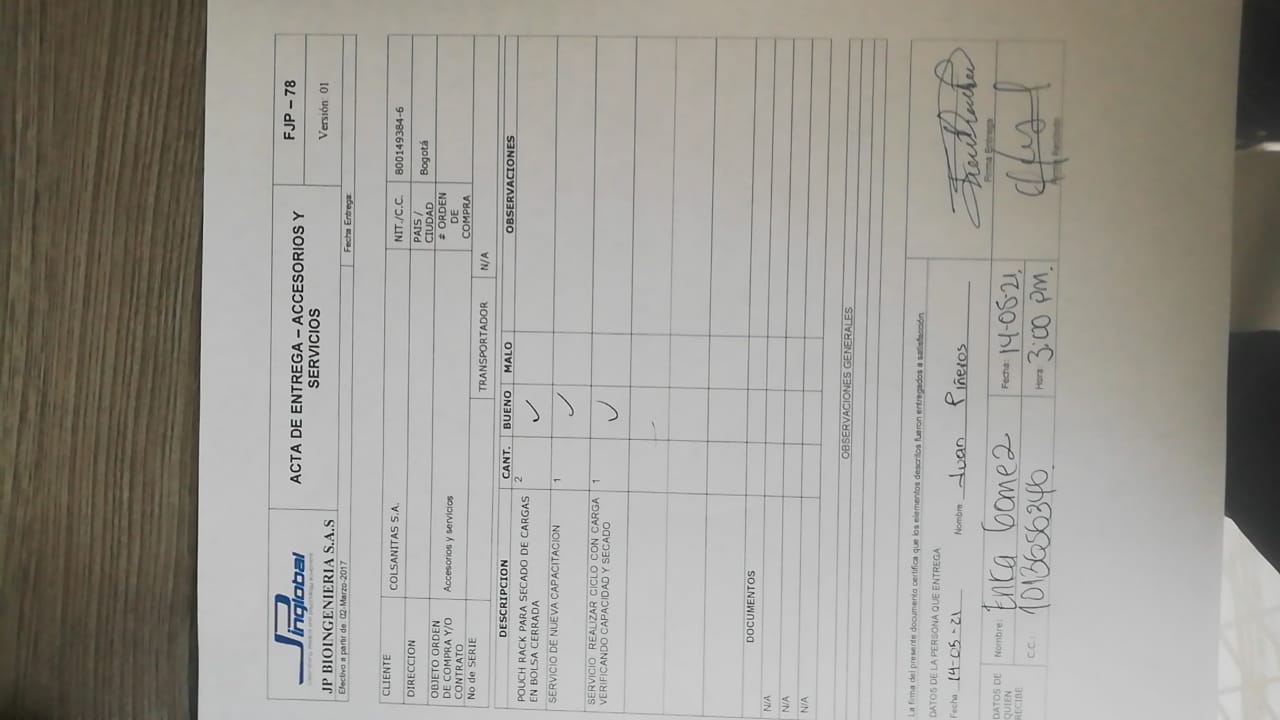 JPinglobal
ACTA DE ENTREGA – ACCESORIOS Y SERVICIOS
FJP – 78
Versión 01
JP BIOINGENIERIA S.A.S
Efectivo a partir de: 02-Marzo-2017
Fecha Entrega:
CLIENTE COLSANITAS S.A. NIT./C.C. 800149384-6
DIRECCION PAIS / CIUDAD Bogotá
OBJETO ORDEN DE COMPRA Y/O CONTRATO Accesorios y servicios # ORDEN DE COMPRA
No de SERIE TRANSPORTADOR N/A
DESCRIPCION CANT. BUENO MALO OBSERVACIONES
POUCH RACK PARA SECADO DE CARGAS EN BOLSA CERRADA 2 ✓
SERVICIO DE NUEVA CAPACITACION 1 ✓
SERVICIO REALIZAR CICLO CON CARGA VERIFICANDO CAPACIDAD Y SECADO 1 ✓
DOCUMENTOS
N/A
N/A
N/A
OBSERVACIONES GENERALES
La firma del presente documento certifica que los elementos descritos fueron entregados a satisfacción
DATOS DE LA PERSONA QUE ENTREGA
Fecha 14-05-21 Nombre Juan Piñeros
Firma Entrega
DATOS DE QUIEN RECIBE Nombre: Erika Gomez Fecha: 14-05-21.
C.C.: 1013656340. Hora 3:00 pm.